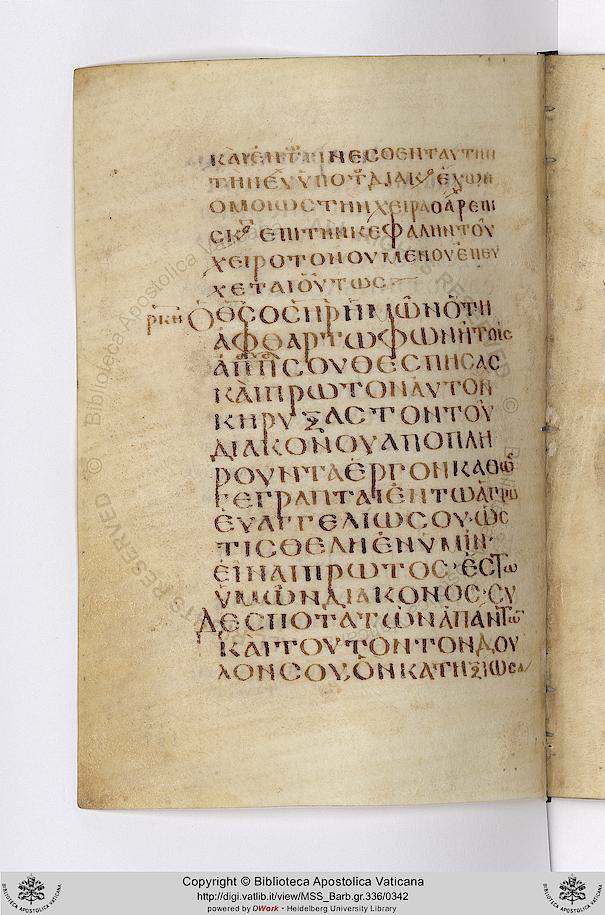 ΟΜΟΙΩΣ ΤΗΝ ΧΕΙΡΑ Ο ΑΡΕΠΙ
ΣΚ ΕΠΙ ΤΗΝ ΚΕΦΑΛΗΝ ΤΟΥ
ΧΕΙΡΟΤΟΝΟΥΜΕΝΟΥ ΕΠΕΥ
ΧΕΤΑΙ ΟΥΤΩΣ
ρκη Ο ΘΣ Ο ΣΗΡ ΗΜΩΝ Ο ΤΗ
ΑΦΘΑΡΤΩ ΦΩΝΗ ΤΟΙΣ
ΣΟΥ ΘΕΣΠΗΣΑΣ
ΚΑΙ ΠΡΩΤΟΝ ΑΥΤΟΝ
ΚΗΡΥΞΑΣ ΤΟΝ ΤΟΥ
ΔΙΑΚΟΝΟΥ ΑΠΟΠΛΗ
ΡΟΥΝΤΑ ΕΡΓΟΝ ΚΑΘΩ
ΓΕΓΡΑΠΤΑΙ ΕΝ ΤΩ ΑΓΙΩ
ΕΥΑΓΓΕΛΙΩ ΣΟΥ· ΩΣ
ΤΙΣ ΘΕΛΗ ΕΝ ΥΜΙΝ
ΕΙΝΑΙ ΠΡΩΤΟΣ· ΕΣΤΩ
ΥΜΩΝ ΔΙΑΚΟΝΟΣ· ΣΥ
ΔΕΣΠΟΤΑ ΤΩΝ ΑΠΑΝΤΩ
ΚΑΙ ΤΟΥΤΟΝ ΤΟΝ ΔΟΥ
ΛΟΝ ΣΟΥ ΟΝ ΚΑΤΗΞΙΩΣΑ
Copyright © Biblioteca Apostolica Vaticana
http://digi.vatlib.it/view/MSS_Barb.gr.336/0342
powered by DWork - Heidelberg University Library
BIBLIOTECA APOSTOLICA VATICANA
BIBLIOTECA APOSTOLICA VATICANA